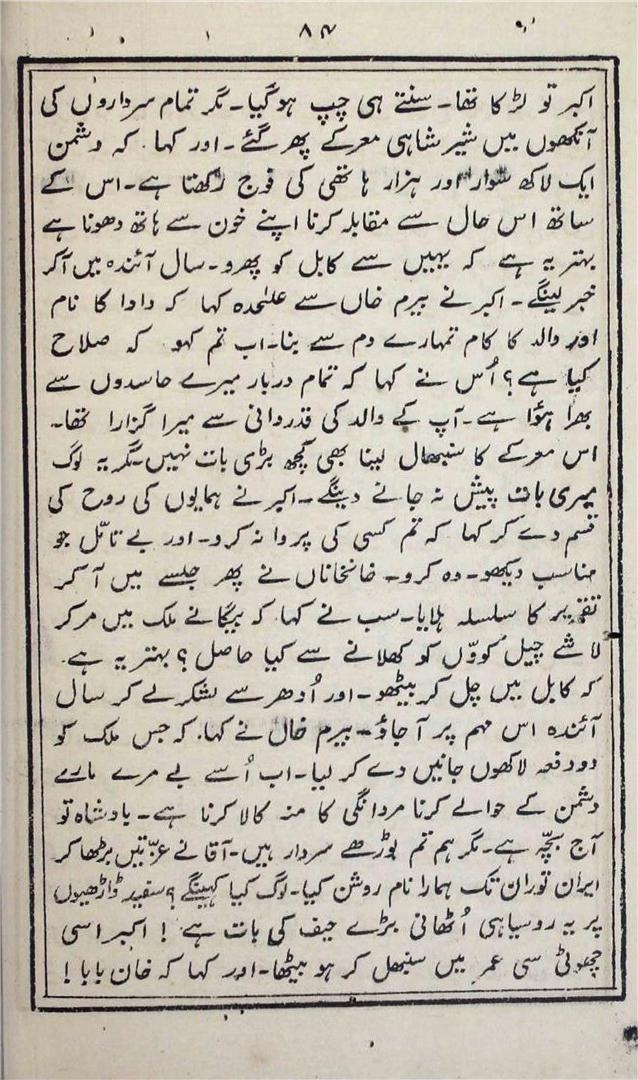 ۸۴
اکبر تو لڑکا تھا۔ سنتے ہی چپ ہوگیا۔ مگر تمام سرداروں کی
آنکھوں میں شیر شاہی معرکے پھر گئے۔ اور کہا۔ کہ دشمن
ایک لاکھ سوار اور ہزار ہاتھی کی فوج رکھتا ہے۔ اس کے
ساتھ اس حال سے مقابلہ کرنا اپنے خون سے ہاتھ دھونا ہے
بہتر یہ ہے کہ یہیں سے کابل کو پھرو۔ سال آئندہ میں آکر
خبر لینگے۔ اکبر نے بیرم خاں سے علٰحدہ کہا کہ دادا کا نام
اور والد کا کام تمہارے دم سے بنا۔ اب تم کہو کہ صلاح
کیا ہے؟ اُس نے کہا کہ تمام دربار میرے حاسدوں سے
بھرا ہؤا ہے۔ آپ کے والد کی قدردانی سے میرا گزارا تھا۔
اس معرکے کا سنبھال لینا بھی کچھ بڑی بات نہیں۔ مگر یہ لوگ
میری بات پیش نہ جانے دینگے۔ اکبر نے ہمایوں کی روح کی
قسم دے کر کہا کہ تم کسی کی پروا نہ کرو۔ اور بے تامّل جو
مناسب دیکھو۔ وہ کرو۔ خانخاناں نے پھر جلسے میں آ کر
تقریر کا سلسلہ ہلایا۔ سب نے کہا کہ بیگانے ملک میں مرکر
لاشے چیل کووّں کو کھلانے سے کیا حاصل؟ بہتر یہ ہے۔
کہ کابل میں چل کر بیٹھو۔ اور اُدھر سے لشکر لے کر سال
آئندہ اس مہم پر آ جاؤ۔ بیرم خاں نے کہا۔ کہ جس ملک کو
دو دفعہ لاکھوں جانیں دے کر لیا۔ اب اُسے بے مرے مارے
دشمن کے حوالے کرنا مردانگی کا منہ کالا کرنا ہے۔ بادشاہ تو
آج بچّہ ہے۔ مگر ہم تم بوڑھے سردار ہیں۔ آقا نے عزّتیں بڑھا کر
ایران توران تک ہمارا نام روشن کیا۔ لوگ کیا کہینگے؟ سفید ڈاڑھیوں
پر یہ روسیاہی اُٹھانی بڑے حیف کی بات ہے! اکبر اسی
چھوٹی سی عمر میں سنبھل کر ہو بیٹھا۔ اور کہا کہ خان بابا!